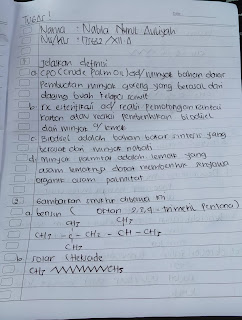 TUGAS!
Nama : Nabila Nurul
No/Kls : /XII A
1 Jelaskan definisi
a CPO (Crude Palm Oil) adl minyak bahan dasar
Pembuatan minyak goreng yang berasal dari
daging buah kelapa sawit
b rx esterifikasi adl reaksi Pemotongan rantai
karbon atau reaksi pembentukan biodisel
dan minyak & lemak
c Biodisel adalah bahan bakar sintesis yang
berasal dari minyak nabati
d Minyak palmitat adalah lemak yang
asam lemaknya dapat membentuk senyawa
organik asam palmitat
2 Gambarkan struktur dibawah ini
a bensin ( 2,2,4 - trimetil Pentana)
CH3 CH3
CH3 - C - CH2 - CH - CH3
CH3
b solar
CH3 CH3